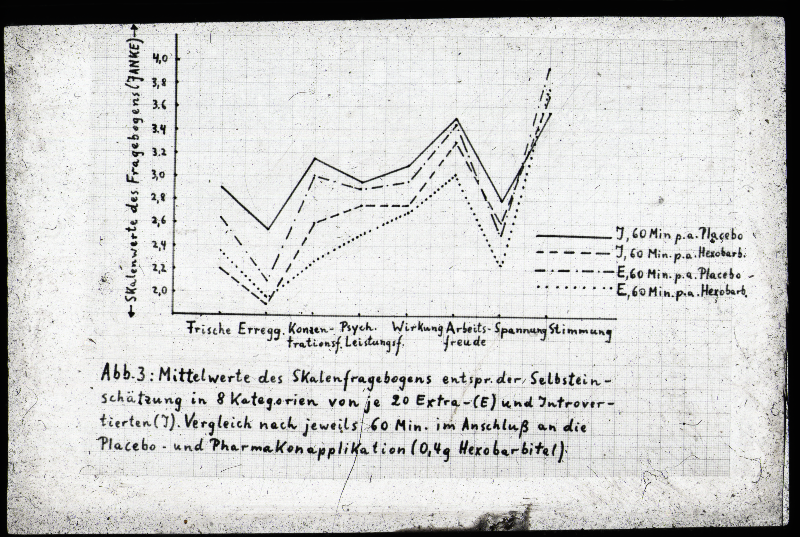 ←Skalenwerte des Fragebogens (JANKE)→
4,0
3,8
3.6
3.4
3.2
3,0
2,8
2,6
2,4
2,2
2,0
Frische Erregg. Konzen- Psych. Wirkung Arbeits- Spannung Stimmung
trationsf. Leistungsf. freude
J, 60 Min p.a. Placebo
J, 60 Min p.a. Hexobarb.
E, 60 Min. p.a. Placebo
E, 60 Min. p.a. Hexobarb.
Abb.3: Mittelwerte des Skalenfragebogens entspr. der Selbstein-
schätzung in 8 Kategorien von je 20 Extra-(E) und Introver-
tierten (J). Vergleich nach jeweils 60 Min. im Anschluß an die
Placebo- und Pharmakonapplikation (0,4g Hexobarbital).